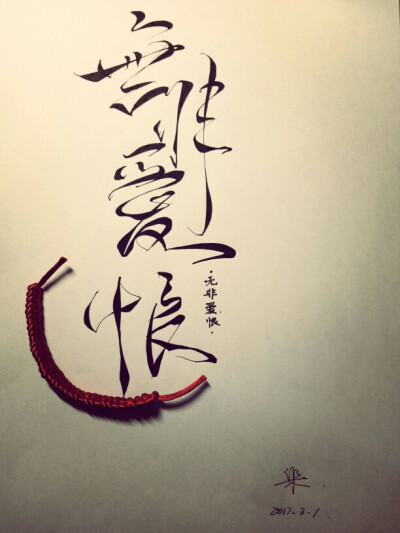 無非愛恨
·无非爱恨·
樂.
2017.3.1